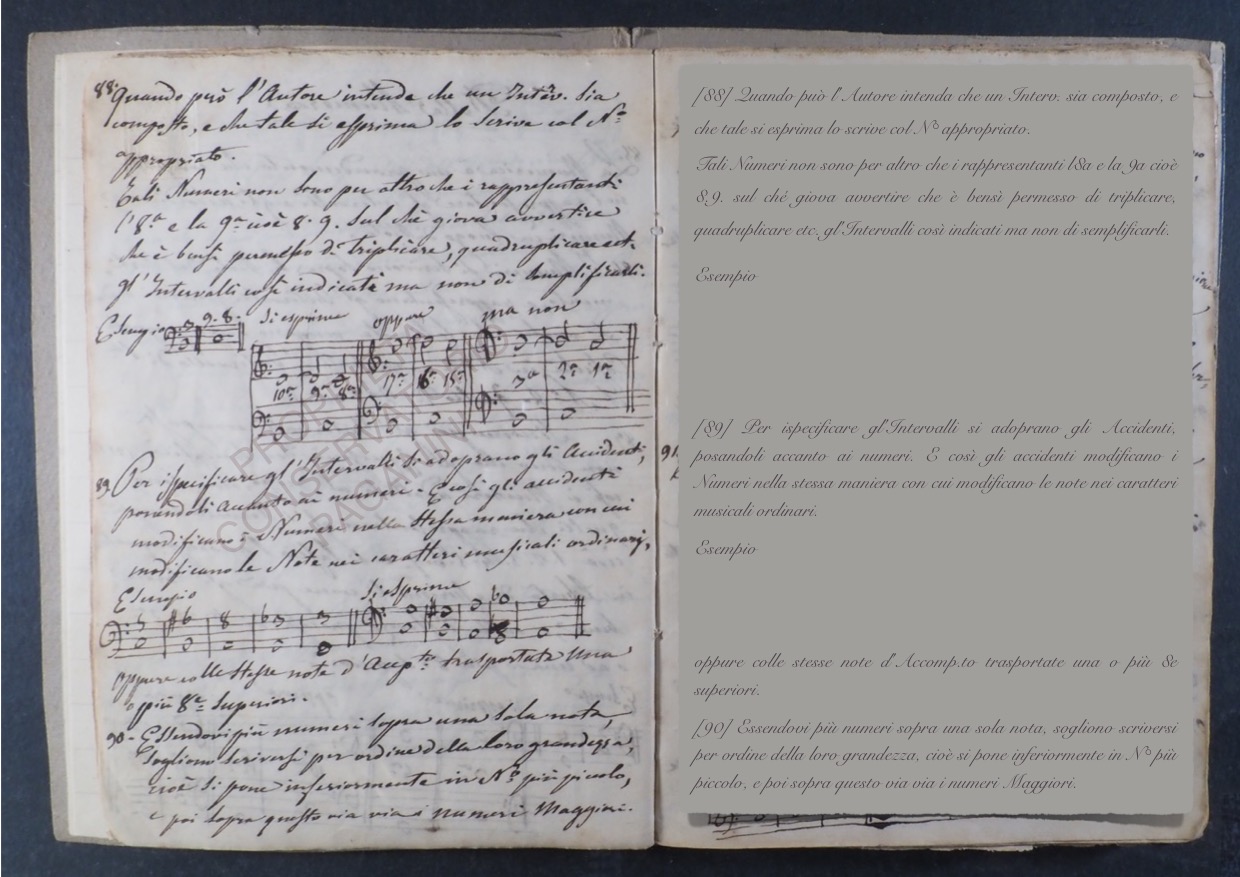 88. Quando però l'Autore intende che un Interv. sia
composto, e che tale si esprima lo scrive col N.º
appropriato.
Tali Numeri non sono per altro che i rappresentanti
l'8.a e la 9.a cioè 8. 9. sul chè giova avvertire
che è bensì permesso di triplicare, quadruplicare ect.
gl'Intervalli così indicati ma non di semplificarli.
Esempio 3 9. 8. Si esprime oppure ma non
10.a 9.a 8.a 17.a 16.a 15.a 3.a 2.a 1.a
89. Per ispecificare gl'Intervalli si adoprano gli Accidenti,
posandoli accanto ai numeri. E così gli accidenti
modificano i Numeri nella stessa maniera con cui
modificano le Note nei caratteri musicali ordinarj,
Esempio Si esprime
5 #6 8 b3 3
oppure colle stesse note d'Accp.to trasportate una
o più 8.e superiori.
90 - Essendovi più numeri sopra una sola nota,
sogliono scriversi per ordine della loro grandezza,
cioè si pone inferiormente in N.º più piccolo,
e poi sopra questo via via i numeri Maggiori.
PROPRIETÀ
CONSERVATORIO
PAGANINI
91.
[88] Quando può l'Autore intenda che un Interv. sia composto, e
che tale si esprima lo scrive col Nº appropriato.
Tali Numeri non sono per altro che i rappresentanti l8a e la 9a cioè
8.9. sul ché giova avvertire che è bensì permesso di triplicare,
quadruplicare etc. gl'Intervalli così indicati ma non di semplificarli.
Esempio
[89] Per ispecificare gl'Intervalli si adoprano gli Accidenti,
posandoli accanto ai numeri. E così gli accidenti modificano i
Numeri nella stessa maniera con cui modificano le note nei caratteri
musicali ordinari.
Esempio
oppure colle stesse note d'Accomp.to trasportate una o più 8e
superiori.
[90] Essendovi più numeri sopra una sola nota, sogliono scriversi
per ordine della loro grandezza, cioè si pone inferiormente in Nº più
piccolo, e poi sopra questo via via i numeri Maggiori.